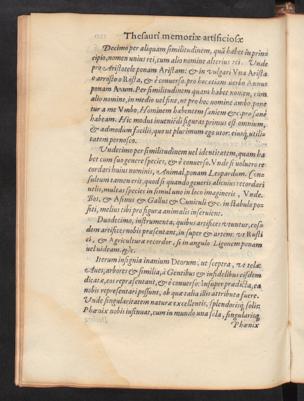 Thesauri memoriæ artificiosæ
Decimo per aliquam similitudinem, quā habet in princi
cipio, nomen unius rei, cum alio nomine alterius rei. Vnde
pro Aristotele ponam Aristam: & in vulgari Vna Arista
o arrosto Rosta, & è conuerso. pro hoc etiam uerbo Annus
ponam Anum. Per similitudinem quam habet nomen, cum
alio nomine, in medio uel fine, ut pro hoc nomine ambo pone
tur a me Vmbo. Hominem habentem saniem & c. pro sanè
habeam. Hic modus inueniēdi figuras primus est omnium,
& admodum facilis, quo ut plurimum ego utor, eiusq; utili
tatem pernosco.
Vndecimo per similitudinem uel identitatem, quam ha
bet cum suo genere species, & è conuerso. Vnde si voluero re
cordari huius nominis, Animal, ponam Leopardum. Con
sultum tamen erit, quod si quando generis alicuius recordari
uelis, multas species in simul uno in loco imagineris, Vnde.
Bos, & Asinus & Gallus & Cuniculi &c. in stabulo po
siti, melius tibi pro figura animalis inseruient.
Duodecimo, instrumenta, quibus artifices vtuntur, eos
dem artifices nobis præsentant, insuper & artem: ut Rusti
ci, & Agricultura recordor, si in angulo Ligonem ponam
uel uideam. &c.
Iterum insignia inanium Deorum, ut sceptra,
Aues, arbores & similia, à Gentibus & infidelibus eisdem
dicata, eos repræsentant, & è conuerso: Insuper prædicta, ea
nobis repræsentari possunt, ob quæ talia illis attributa fuere.
Vnde singularitatem naturæ excellentis, splendorisq; solis:
Phœnix nobis insinuat, cum in mundo una sola, singularisq;
Phœnix